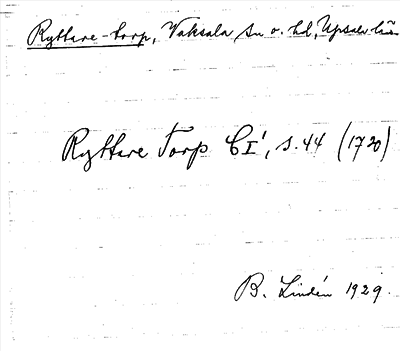 Ryttare-torp, Vaksala sn o. hd, Upsala län
Ryttare Torp CI', s. 44 (1720)
B. Lindén 1929.